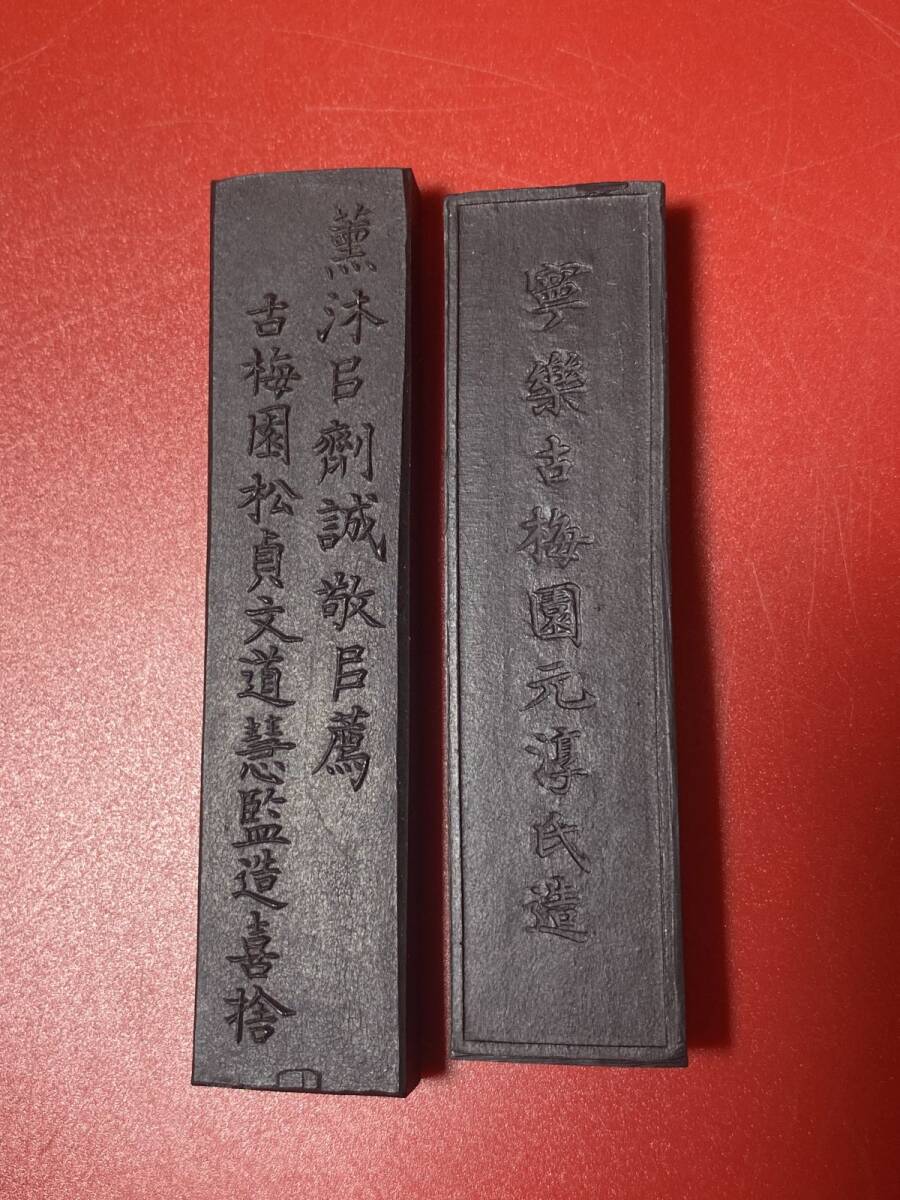 薫沐㠯劑誠敬㠯薦
古梅園松貞文道慧監造喜捨
寧樂古梅園元淳氏造